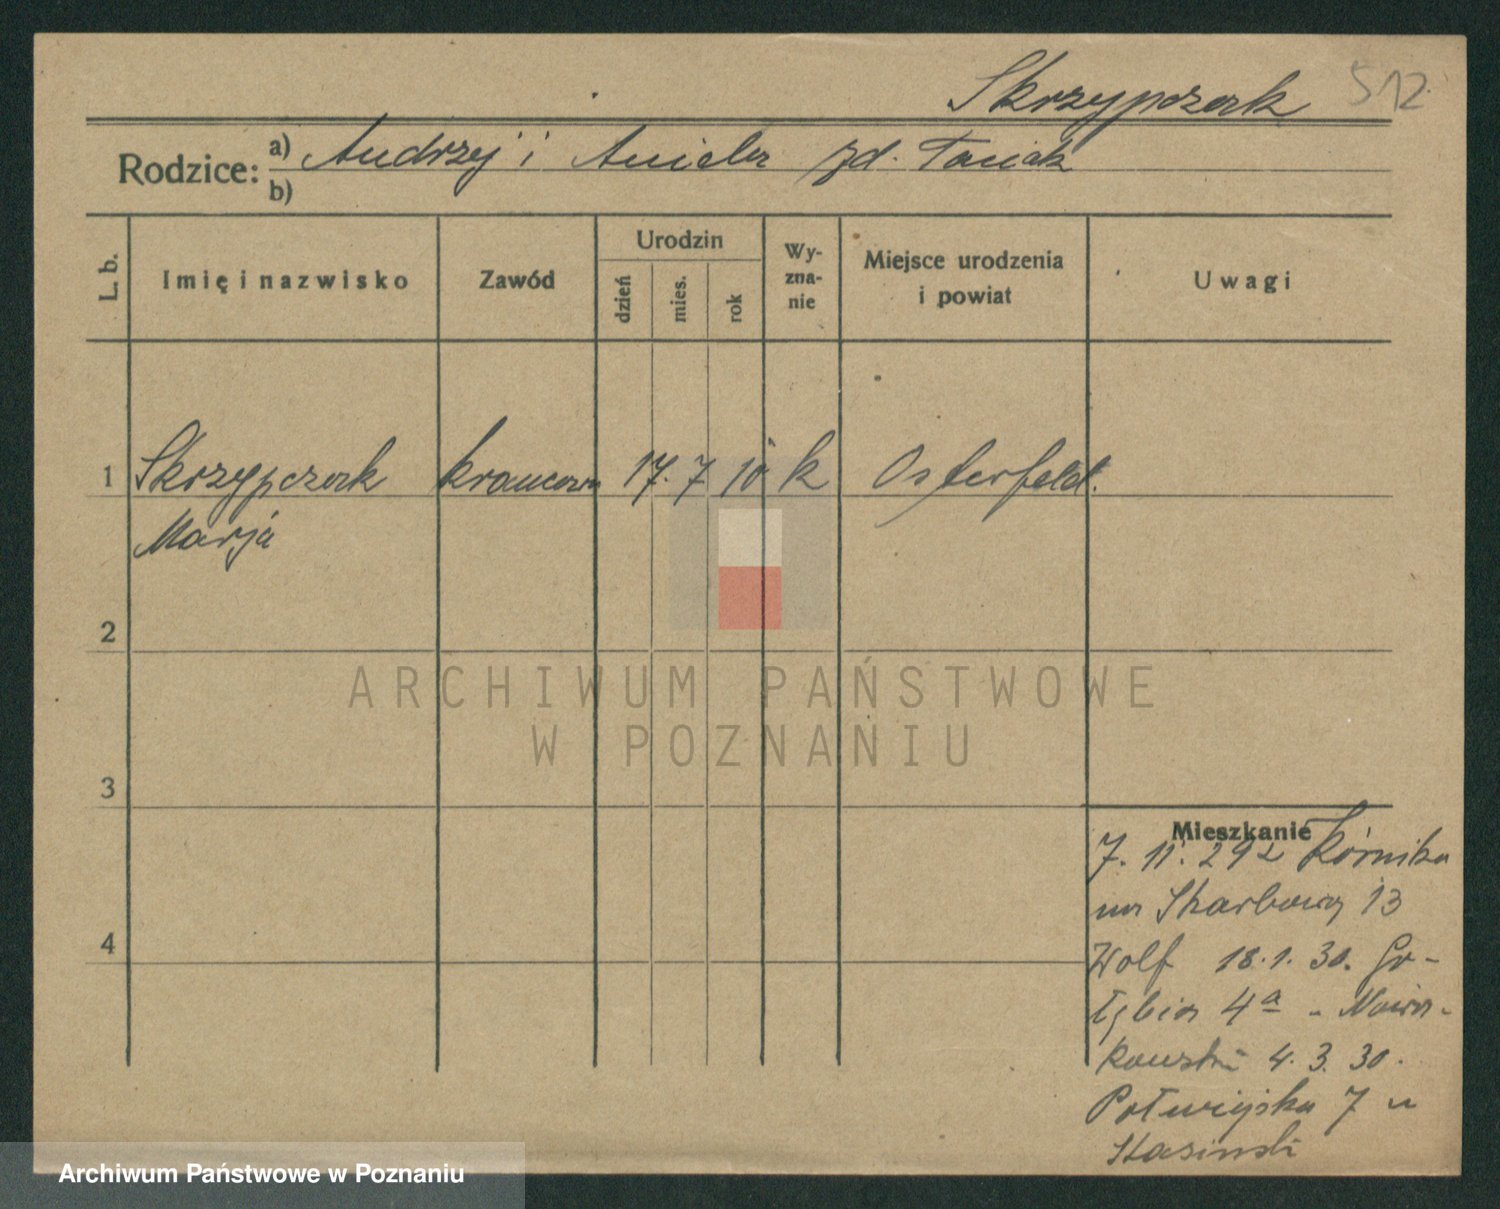 Skrzypczak 512
Rodzice: a) Andrzej i Aniela zd. Taciak
b)
L. b. Imię i nazwisko Zawód Urodzin dzień mies. rok Wyznanie Miejsce urodzenia i powiat Uwagi
1 Skrzypczak krawcowa 17. 7 10 k Osterfeld.
Marja
2
3
4
Mieszkanie
7. 11. 29 z Kórnika
na Skarbową 13
Wolf 18.1.30. Go-
łębia 4a - Nowa-
kowski 4.3.30.
Półwiejska 7 u
Stasinski
ARCHIWUM PAŃSTWOWE
W POZNANIU
Archiwum Państwowe w Poznaniu